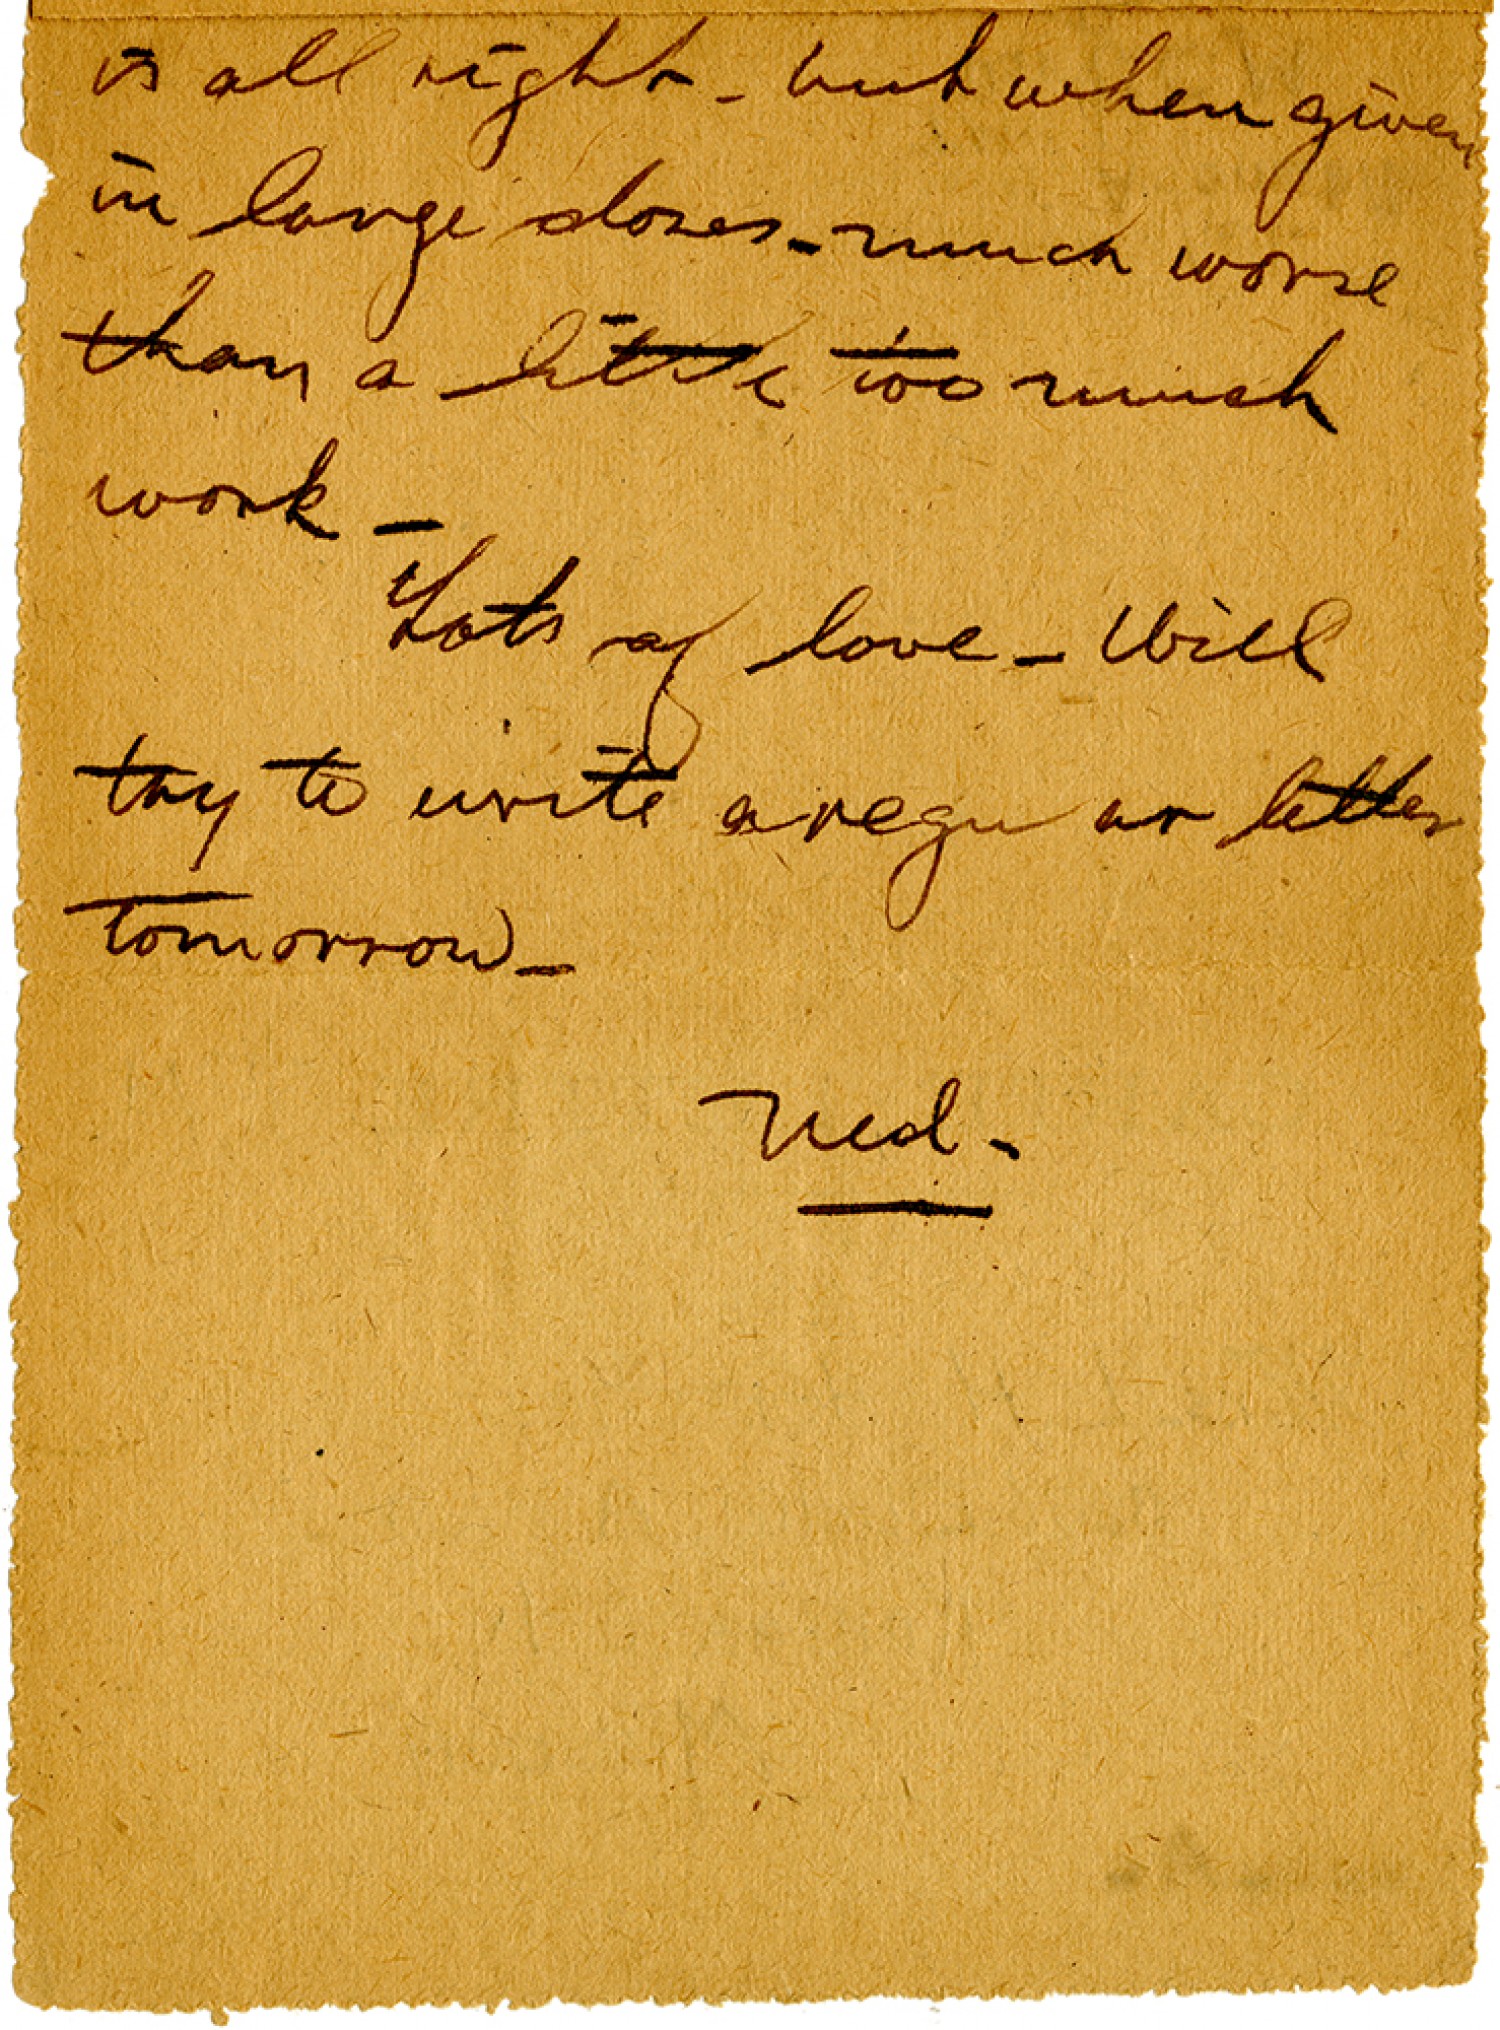 is all right - but when given
in large doses - much worse
than a little too much
work -
Lots of love - Will
try to write a regular letter
tomorrow -
Ned -